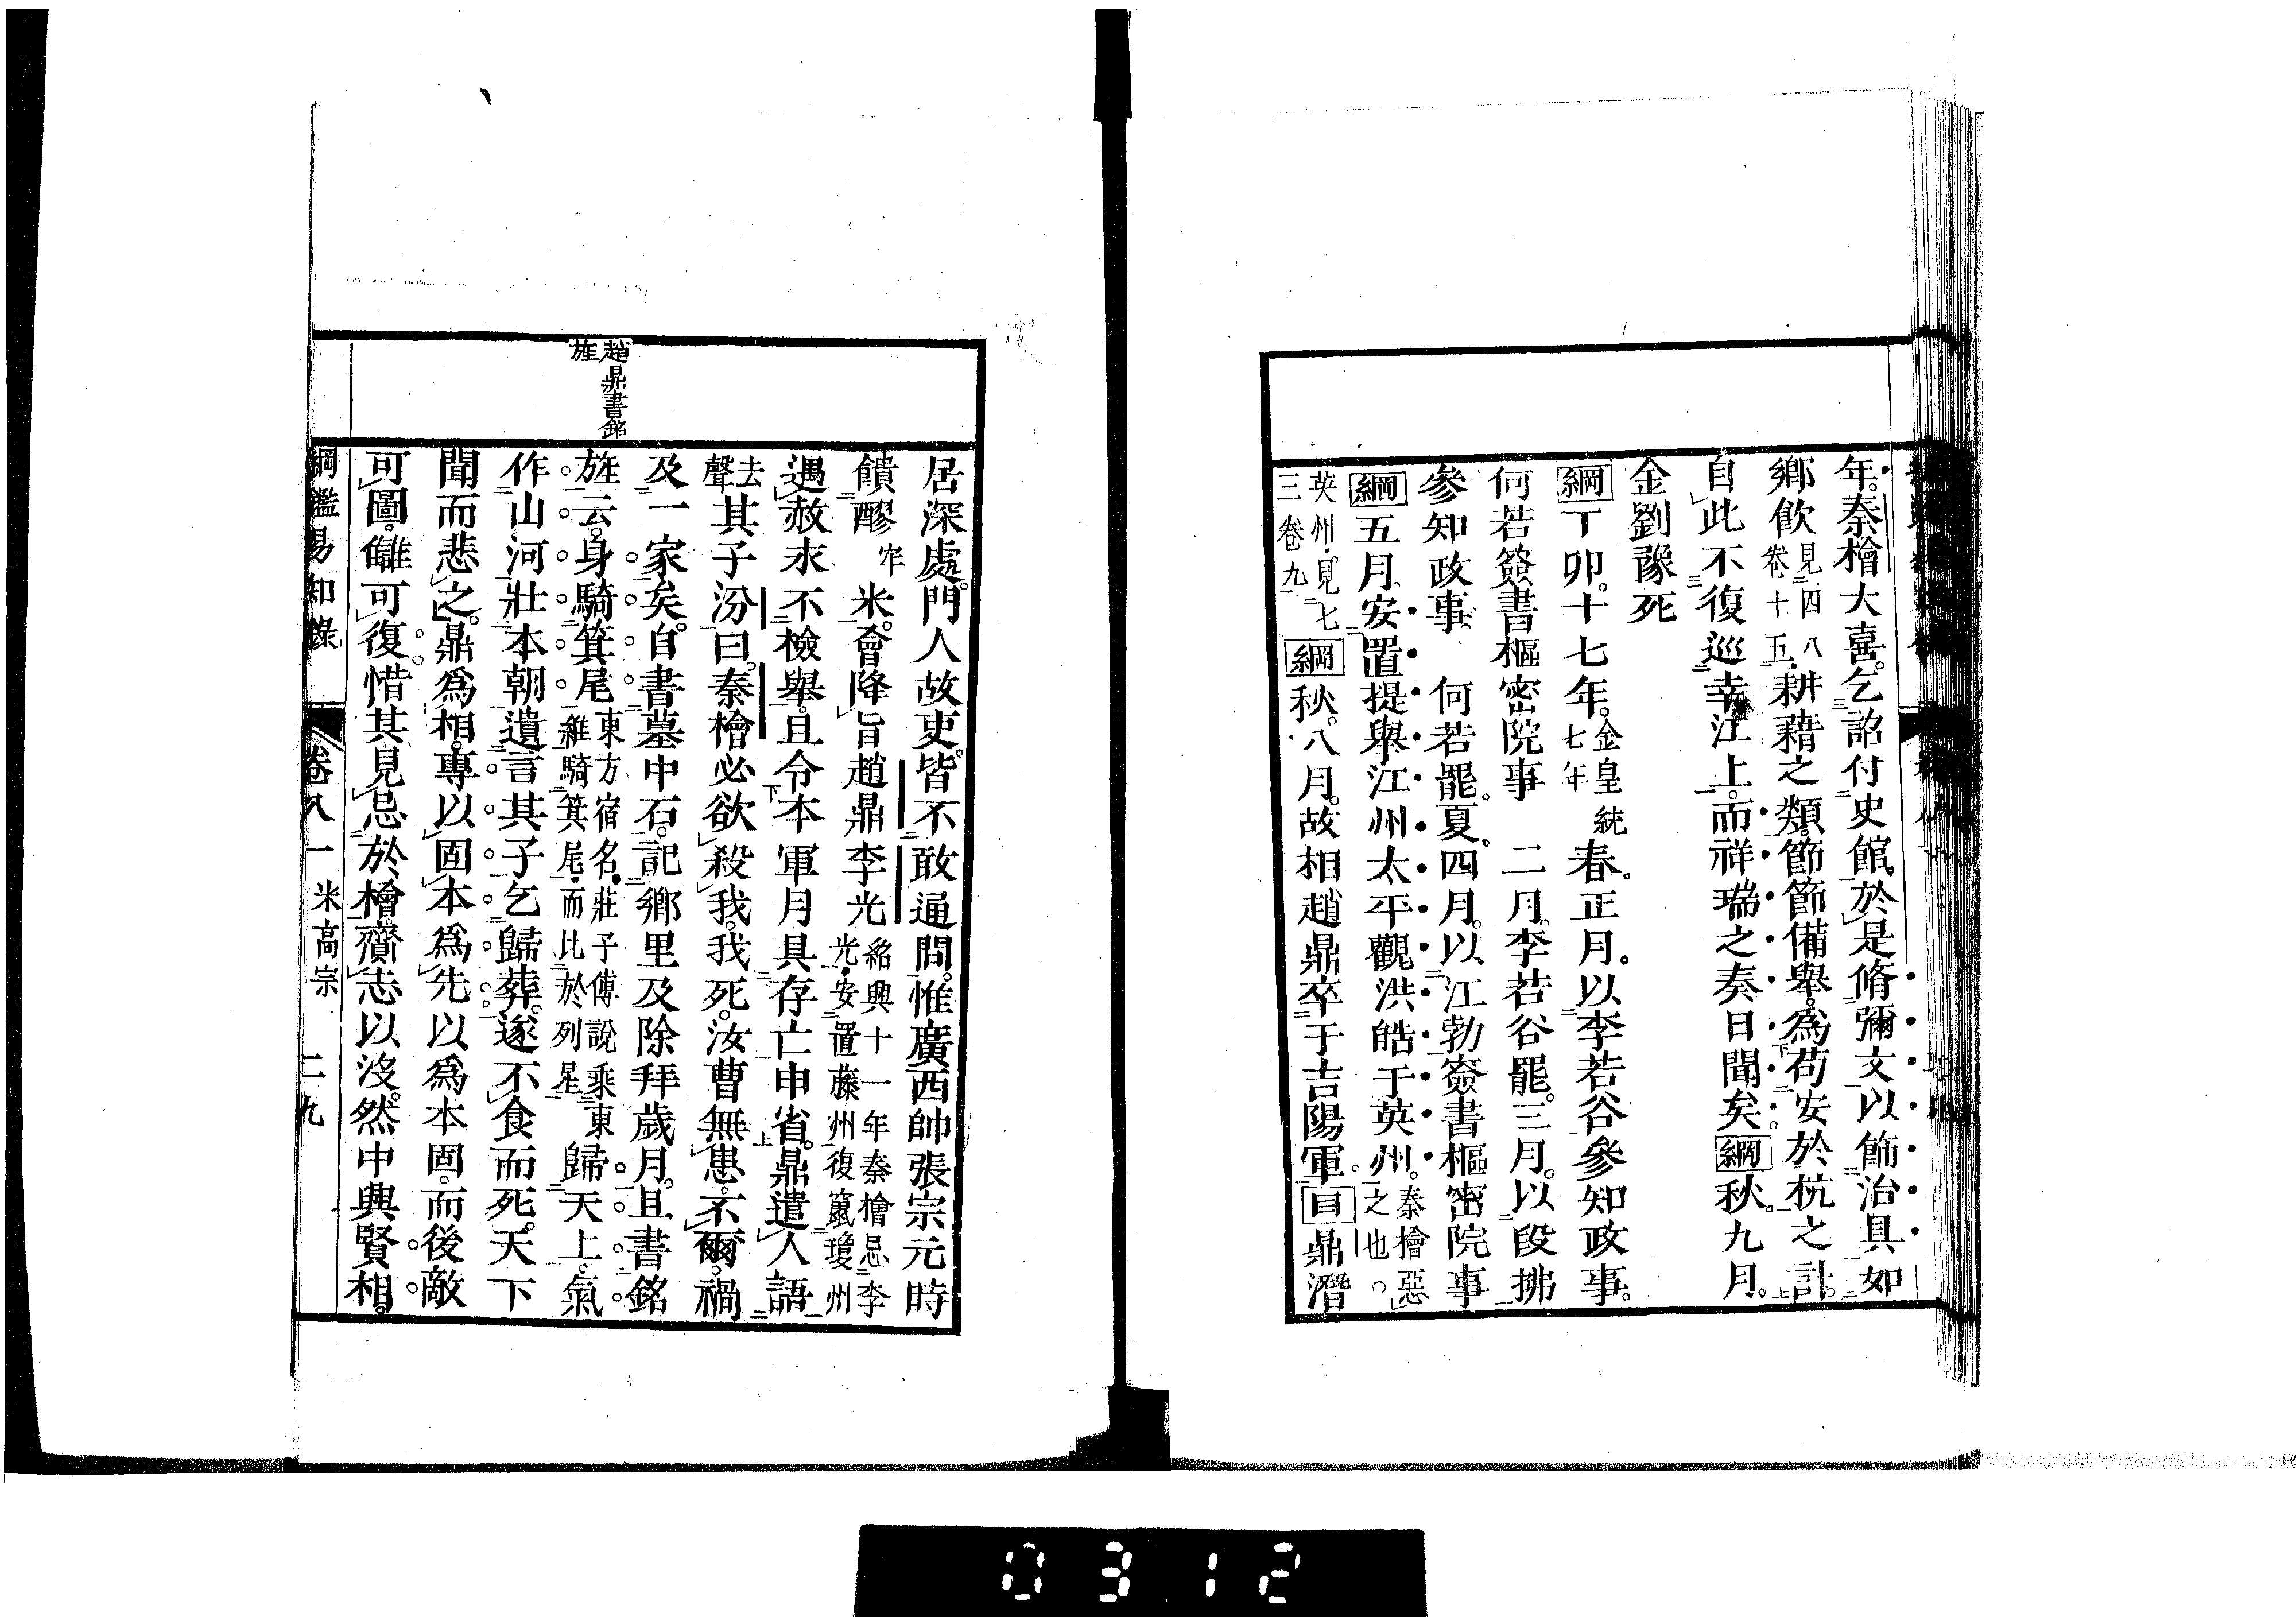 年。秦檜大喜。乞詔付史館。於是脩彌文以飾治具如
鄉飲見四八卷十五耕藉之類。節節備舉。為苟安於杭之計。
自此不復巡幸江上。而祥瑞之奏日聞矣。綱秋。九月。
金劉豫死
綱丁卯。十七年。金皇統七年春。正月。以李若谷參知政事。
何若簽書樞密院事　二月。李若谷罷。三月。以段拂
參知政事　何若罷。夏。四月。以江勃簽書樞密院事
綱五月。安置提舉江州太平觀洪皓于英州。秦檜惡之也。
英州見七三卷九綱秋。八月。故相趙鼎卒于吉陽軍。目鼎潛
趙鼎書銘
旌
居深處。門人故吏。皆不敢逼問。惟廣西帥張宗元時
饋醪牢米。會降旨趙鼎李光紹興十一年秦檜忌李光安置藤州復竄瓊州
遇赦永不檢舉。且令本軍月具存亡申省。鼎遣人語
去聲其子汾曰。秦檜必欲殺我。我死。汝曹無患。不爾。禍
及一家矣。自書墓中石。記鄉里及除拜歲月。且書銘
旌云。身騎箕尾東方宿名莊子傅說乘東維騎箕尾而比於列星歸天上。氣
作山河壯本朝遺言其子乞歸葬。遂不食而死。天下
聞而悲之。鼎為相。專以固本為先以為本固。而後敵
可圖。讎可復惜其見忌於檜齎志以沒。然中興賢相。
綱鑑易知錄　卷八一　宋高宗　二九
0312